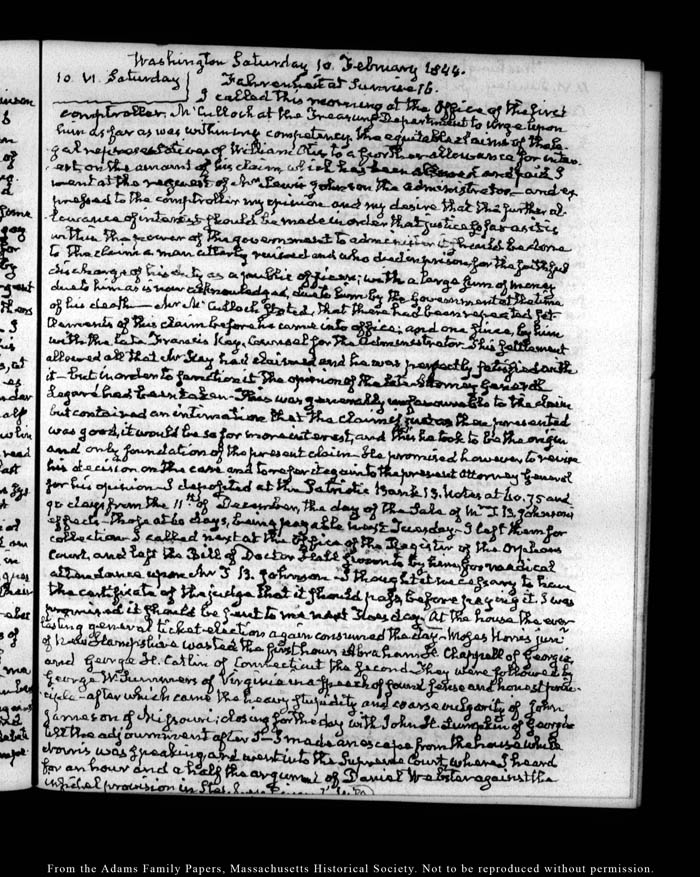 Washington Saturday 10. February 1844.
10. VI. Saturday Fahrenheit at Sunrise 16.
I called this morning at the Office of the first
comptroller. Mc.Culloch at the Treasury Department to urge upon
him as far as was within my competency, the equitable claims of the le-
gal representatives of William Otis to a further allowance for inter-
est, on the amount of his claim which has been allowed and paid. I
went at the request of Mr Lewis Johnson the administrator — and ex
pressed to the comptroller my opinion and my desire that this further al-
lowance of interest should be made in order that justice as far as it is
within the power of the government to administer it, should be done
to the claim of a man utterly ruined and who died in prison for the faithful
discharge of his duty as a public officer; with a large sum of money
due to him as is now acknowledged, due to him by the Government at the time
of his death — Mr Mc.Culloch stated, that there had been repeated set-
tlements of this claim before he came into office; and one since, by him
with the late Francis Key, Counsel for the Administrator. This settlement
allowed all that Mr Key had claimed and he was perfectly satisfied with
it — but in order to sanction it the opinion of the late Attorney General
Legaré had been taken — This was generally unfavourable to the claim
but contained an intimation that the claim if just as then presented
was good, it would be so for more interest, and this he took to be the origin
and only foundation of the present claim — He promised however to revise
his decision on the case and to refer it again to the present Attorney General
for his opinion — I deposited at the Patriotic Bank 13. Notes at 60. 75 and
90 days from the 11th of December, the day of the Sale of Mr T. B. Johnson's
effects — those at 60 days, being payable next Tuesday — I left them for
collection. I called next at the Office of the Register of the Orphans
Court, and left the Bill of Doctor Hall sworn to by him, for medical
attendance upon Mr T. B. Johnson — I thought it necessary to have
the certificate of the judge that it should pass, before paying it. I was
promised it should be sent to me next Tuesday. At the house the ever-
lasting general ticket election again consumed the day — Moses Norris junr
of New Hampshire wasted the first hour; Abraham H. Chappell of Georgia,
and George S. Catlin of Connecticut the second. They were followed by
George W. Summers of Virginia in a speech of sound sense and honest prin-
ciple — after which came the heavy stupidity and coarse vulgarity of John
Jameson of Missouri; closing for the day with John H. Lumpkin of Georgia
till the adjournment after 3. I made an escape from the house while
Norris was speaking and went into the Supreme Court, where I heard
for an hour and a half the argument of Daniel Webster against the
infidel provision in Stephen Girard's
From the Adams Family Papers, Massachusetts Historical Society. Not to be reproduced without permission.